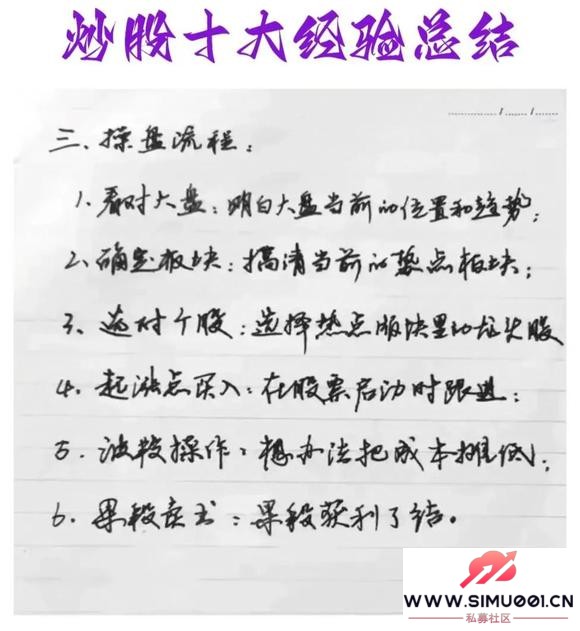 炒股十大经验总结
三、操盘流程：
1. 看对大盘：明白大盘当前的位置和趋势；
2. 确定板块：搞清当前的热点板块；
3. 选对个股：选择热点版块里的龙头股
4. 起涨点买入：在股票启动时跟进；
5. 波段操作：想办法把成本摊低；
6. 果段卖出：果段获利了结。
WWW.SIMU001.CN
私募社区